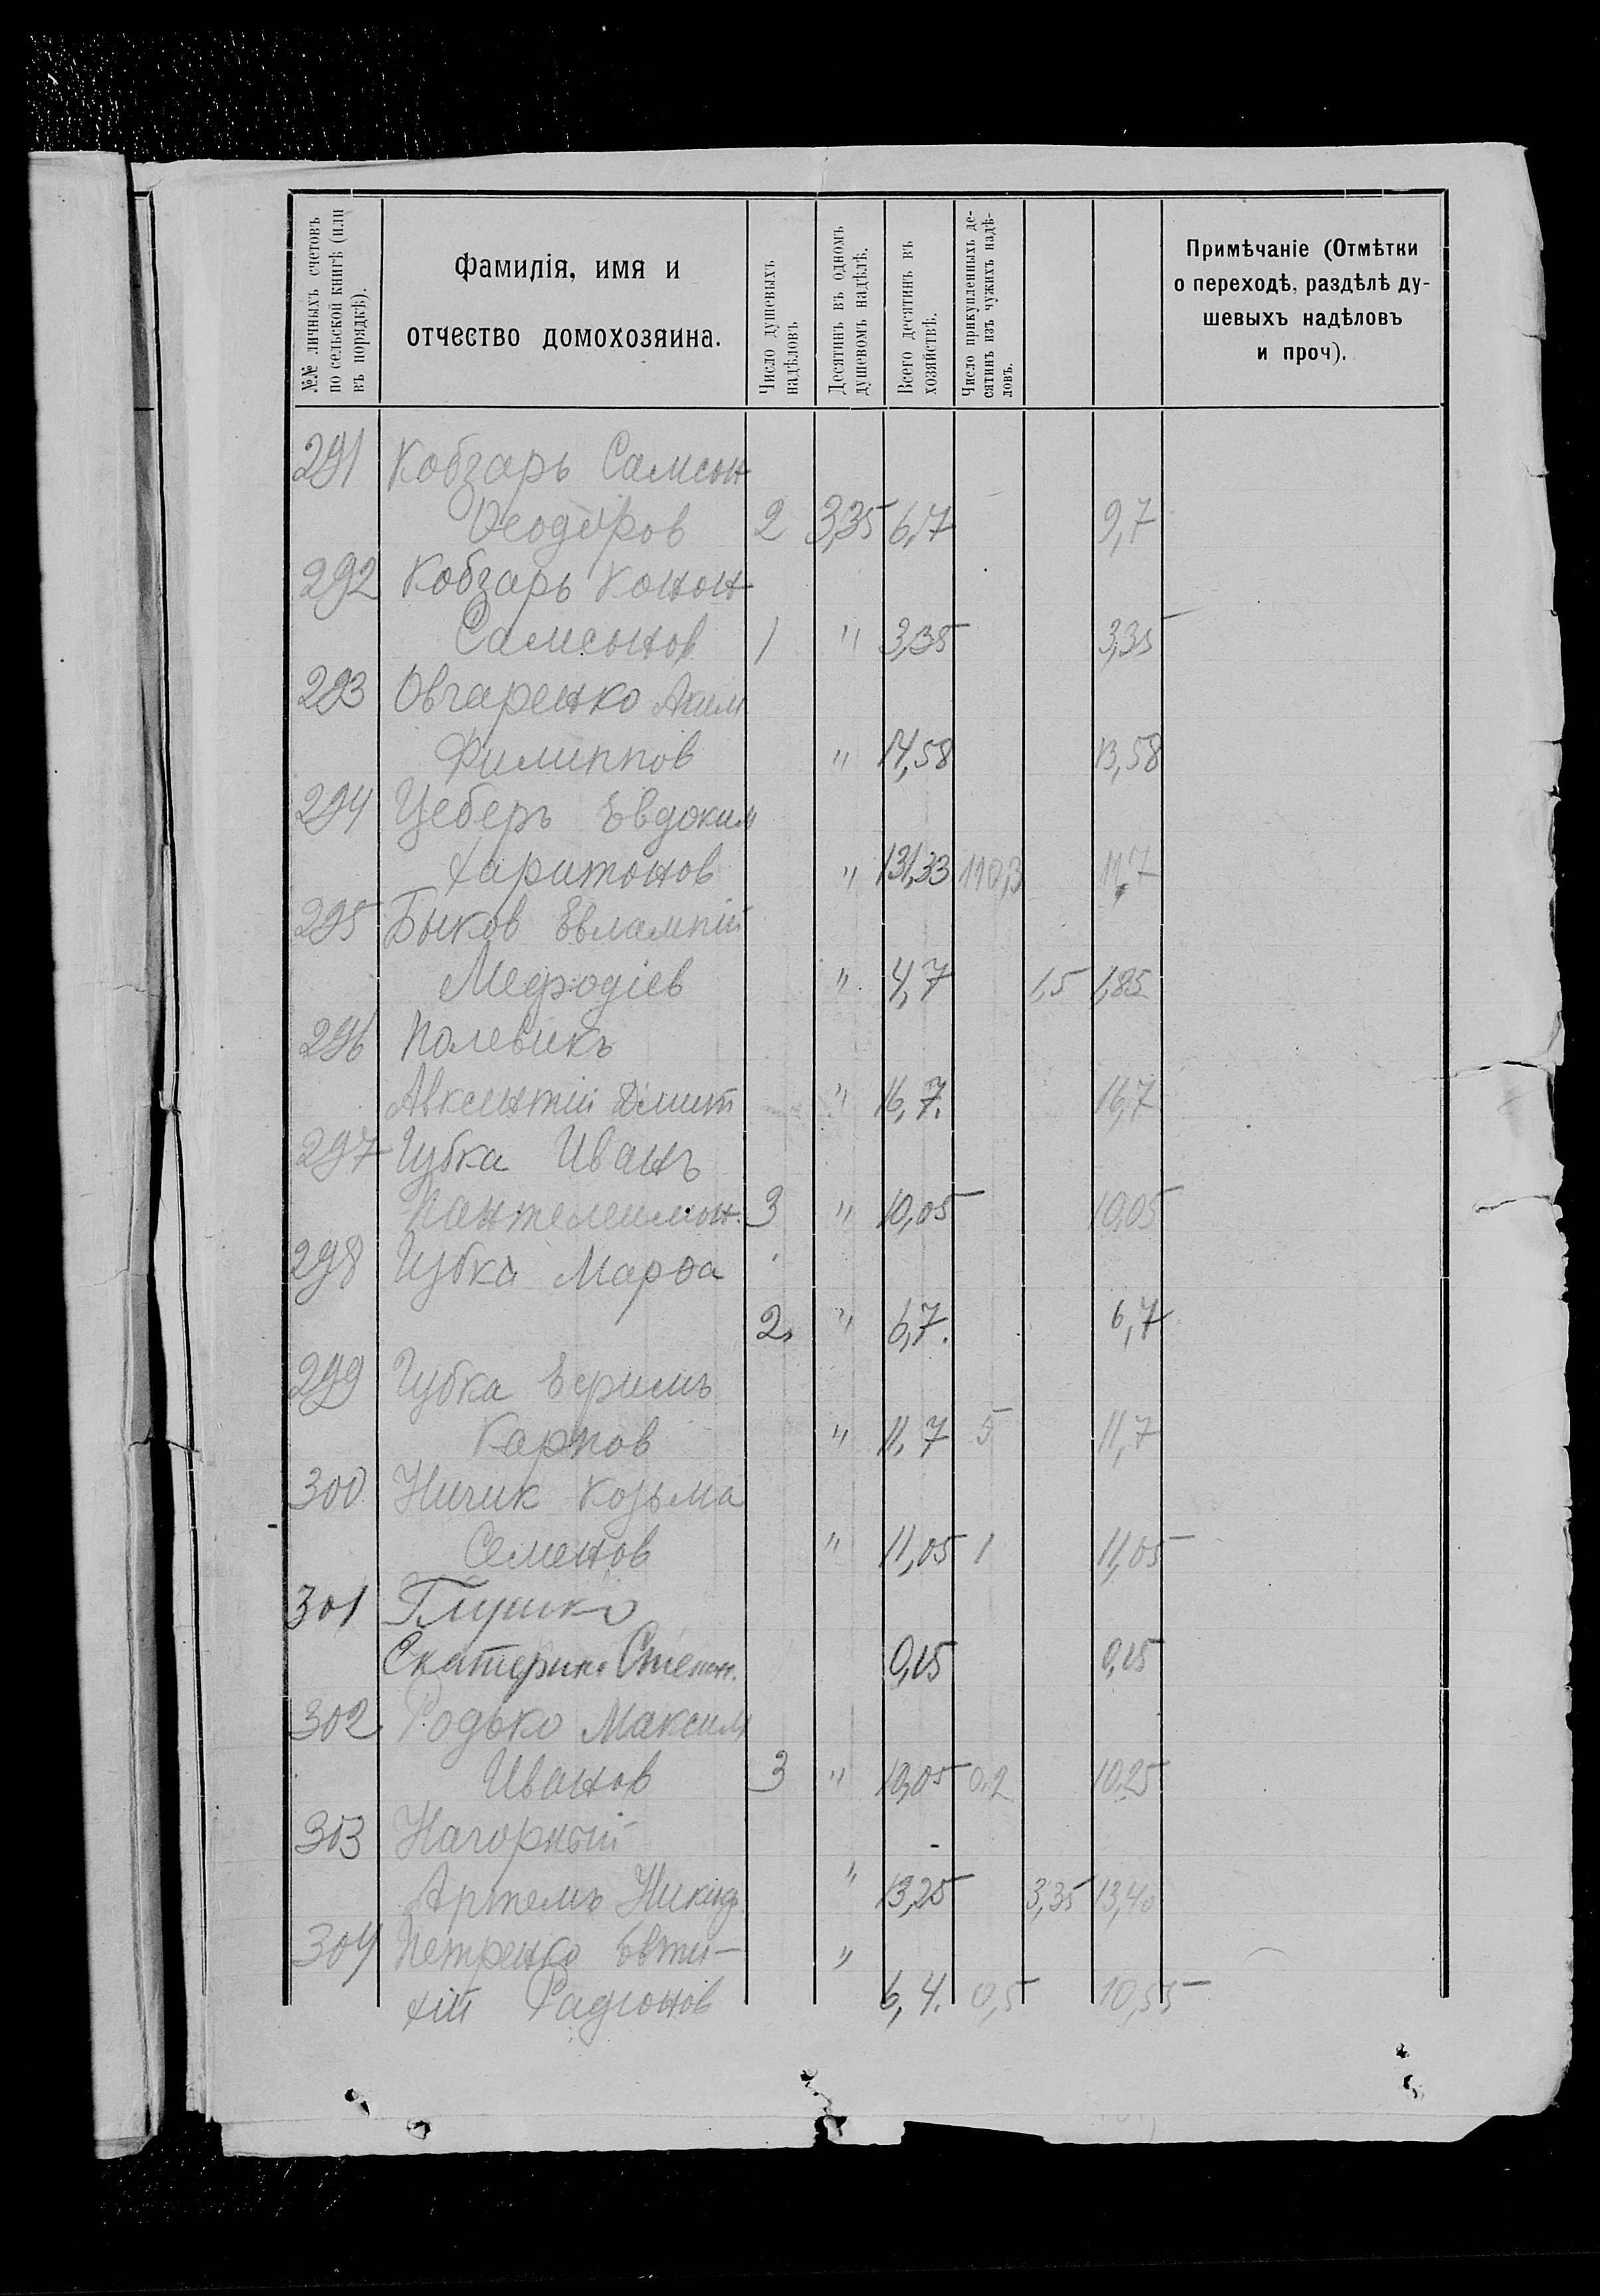 №№ личныхъ счетовъ
по сельской книгѣ (или
въ порядкѣ).
Фамилія, имя и
отчество домохозяина.
Число душевыхъ
надѣловъ
Десятинъ въ одномъ
душевомъ надѣлѣ.
Всего десятинъ въ
хозяйствѣ.
Число прикупленныхъ де-
сятинъ изъ чужихъ надѣ-
ловъ.
Примѣчаніе (Отмѣтки
о переходѣ, раздѣлѣ ду-
шевыхъ надѣловъ
и проч).
291 Кобзарь Самсон
Ѳеодоров 2 3,35 6,7 9,7
292 Кобзарь Конон
Самсонов 1 " 3,35 3,35
293 Овчаренко Аким
Филиппов " 14,58 13,58
294 Цеберъ Евдоким
Харитонов " 131,33 110,3 11,7
295 Быков Евлампій
Мефодіев " 4,7 1,5 1,85
296 Полевикъ
Авксентій Дмит " 16,7. 16,7
297 Губка Иванъ
Пантелеимон. 3 " 10,05 10,05
298 Губка Марѳа
2 " 6,7. 6,7
299 Губка Ефимъ
Карпов " 11,7 5 11,7
300 Ничик Козьма
Семенов " 11,05 1 11,05
301 Глушко
Екатерина Степан. 0,15 0,15
302 Родько Максим
Иванов 3 " 10,05 0,2 10,25
303 Нагорный
Артемъ Никид " 13,25 3,35 13,40
304 Петренко Евти- "
хій Радіонов 6,4. 0,5 10,55